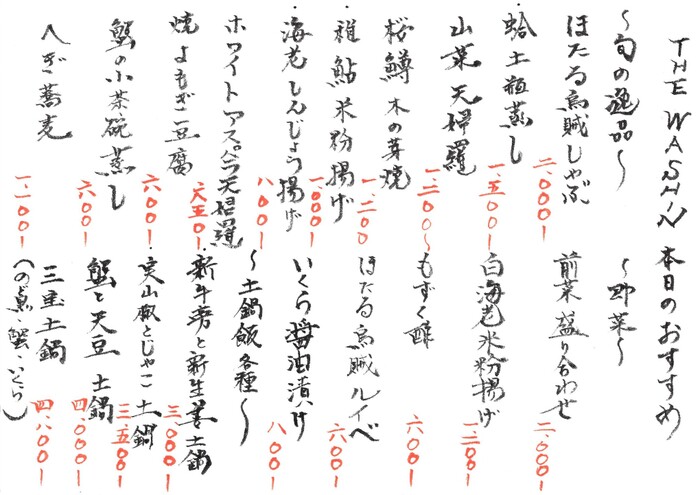 THE WASHIN 本日のおすすめ
〜旬の逸品〜
ほたる烏賊しゃぶ 二、〇〇〇ー
・蛤土瓶蒸し 一、五〇〇ー
山菜天婦羅 一、二〇〇〜
桜鱒木の芽焼 一、二〇〇
・稚鮎米粉揚げ 一、〇〇〇ー
・海老しんじょう揚げ 八〇〇ー
ホワイトアスパラ天婦羅 六五〇ー
焼よもぎ豆腐 六〇〇ー
蟹の小茶碗蒸し 六〇〇ー
へぎ蕎麦 一、一〇〇ー
〜野菜〜
前菜盛り合わせ 二、〇〇〇ー
白海老米粉揚げ 一、二〇〇ー
もずく酢 六〇〇ー
ほたる烏賊ルイベ 六〇〇ー
いくら醤油漬け 八〇〇ー
〜土鍋飯各種〜
・新牛蒡と新生姜土鍋 三、〇〇〇ー
・実山椒とじゃこ土鍋 三、五〇〇ー
蟹と天豆土鍋 四、〇〇〇ー
三宝土鍋 四、八〇〇ー
(のど黒・蟹・いくら)